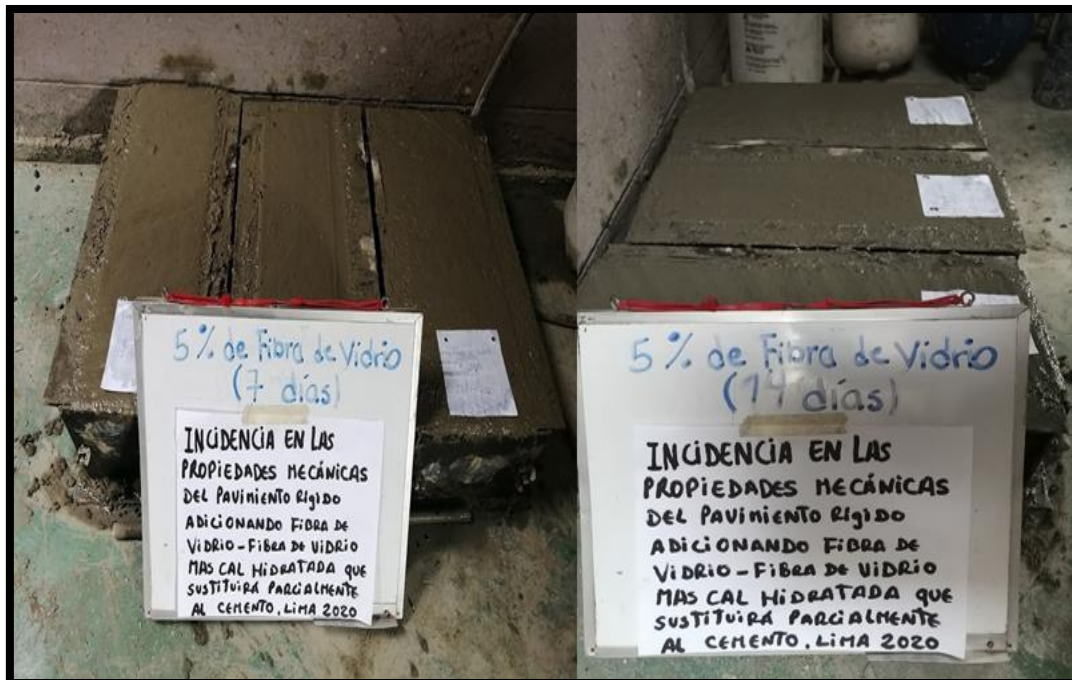 5% de Fibra de Vidrio
(7 días)
INCIDENCIA EN LAS
PROPIEDADES MECÁNICAS
DEL PAVIMIENTO RÍGIDO
ADICIONANDO FIBRA DE
VIDRIO-FIBRA DE VIDRIO
MAS CAL HIDRATADA QUE
SUSTITUIRÁ PARCIALMENTE
AL CEMENTO, LIMA 2020
5% de Fibra de Vidrio
(14 días)
INCIDENCIA EN LAS
PROPIEDADES MECÁNICAS
DEL PAVIMIENTO RÍGIDO
ADICIONANDO FIBRA DE
VIDRIO-FIBRA DE VIDRIO
MAS CAL HIDRATADA QUE
SUSTITUIRÁ PARCIALMENTE
AL CEMENTO, LIMA 2020